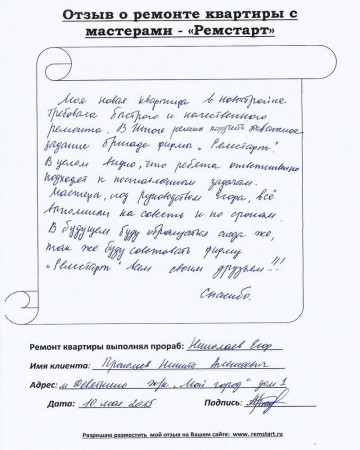 Отзыв о ремонте квартиры с
мастерами - «Ремстарт»
Моя новая квартира в новостройке
требовала быстрого и качественного
ремонта. В итоге решил поручить это важное
задание бригаде фирмы „Ремстарт".
В целом видно, что ребята ответственно
подходят к поставленным задачам.
Мастера, под руководством Егора, всё
выполнили на совесть и по срокам.
В будущем буду обращаться сюда же,
так же буду советовать фирму
„Ремстарт" всем своим друзьям!!!
Спасибо.
Ремонт квартиры выполнял прораб: Николаев Егор
Имя клиента: Никита Алексеевич
Адрес: м Девяткино жк „Мой город" дом 1
Дата: 10 мая 2015 Подпись:
Разрешаю разместить мой отзыв на Вашем сайте: www. remstart.ru